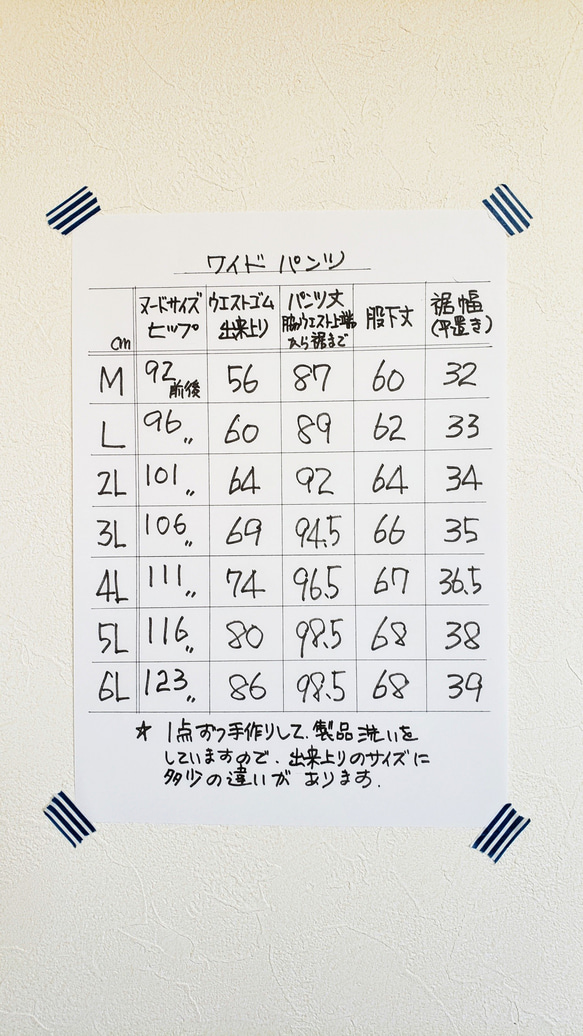 ワイド パンツ
cm ヌードサイズ ヒップ ウエストゴム 出来上り パンツ丈 脇ウエスト上端から裾まで 股下丈 裾幅 (平置き)
M 92前後 56 87 60 32
L 96〃 60 89 62 33
2L 101〃 64 92 64 34
3L 106〃 69 94.5 66 35
4L 111〃 74 96.5 67 36.5
5L 116〃 80 98.5 68 38
6L 123〃 86 98.5 68 39
☆ 1点ずつ手作りして、製品洗いを
していますので、出来上りのサイズに
多少の違いが あります.